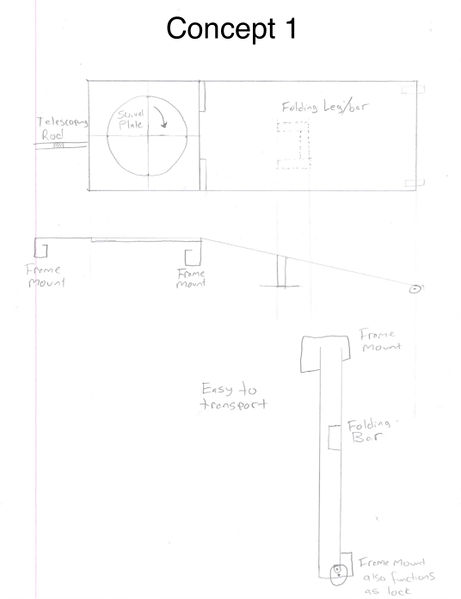 Concept 1
Folding Leg/bar
Swivel
Plate
Telescoping
Rod
Frame
Mount
Frame
Mount
Frame
Mount
Easy to
transport
Folding
Bar
Frame Mount
also functions
as lock